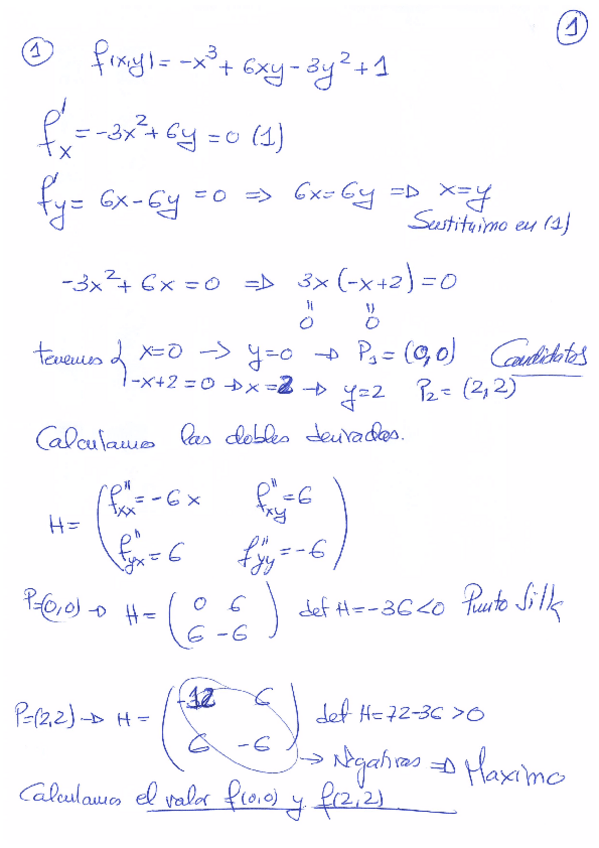 1
① f(x,y) = -x³ + 6xy - 3y² + 1
f'x = -3x² + 6y = 0 (1)
f'y = 6x - 6y = 0 ⇒ 6x = 6y ⇒ x = y
Sustituimo en (1)
-3x² + 6x = 0 ⇒ 3x (-x+2) = 0
" "
0 0
tenemos { x=0 → y=0 → P₁ = (0,0) Candidatos
-x+2 = 0 → x = 2 → y=2 P₂ = (2,2)
Calculamos las dobles derivadas.
H = ( f''xx = -6x f''xy = 6
f''yx = 6 f''yy = -6 )
P=(0,0) → H = ( 0 6
6 -6 ) det H = -36 < 0 Punto Silla
P=(2,2) → H = ( -12 6
6 -6 ) det H = 72-36 > 0
→ Negativas ⇒ Maximo
Calculamos el valor f(0,0) y f(2,2)